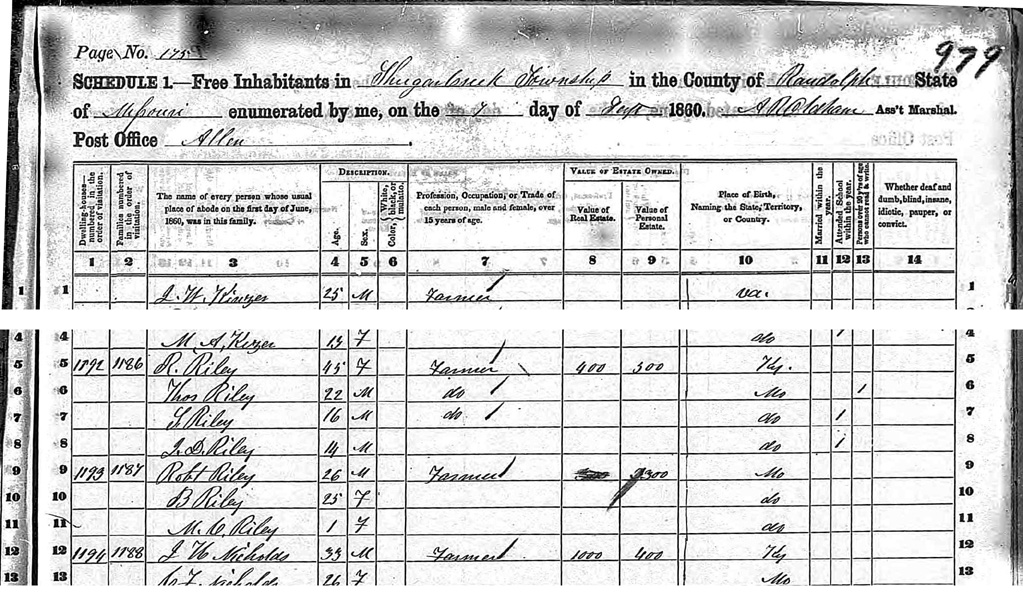 979
Page No. 175
SCHEDULE 1.—Free Inhabitants in Shugarcreek Township in the County of Randolph State
of Missouri enumerated by me, on the 7 day of Sept 1860. Ass't Marshal.
Post Office Allen.
Dwelling-houses—numbered in the order of visitation.
Families numbered in the order of visitation.
The name of every person whose usual place of abode on the first day of June, 1860, was in this family.
DESCRIPTION.
Age.
Sex.
Color, White, black, or mulatto.
Profession, Occupation, or Trade of each person, male and female, over 15 years of age.
VALUE OF ESTATE OWNED.
Value of Real Estate.
Value of Personal Estate.
Place of Birth, Naming the State, Territory, or Country.
Married within the year.
Attended School within the year.
Persons over 20 y'rs of age who cannot read & write.
Whether deaf and dumb, blind, insane, idiotic, pauper, or convict.
1 2 3 4 5 6 7 8 9 10 11 12 13 14
1 1 J. W. 25 M Farmer Va. 1
4 4 M. A. 13 F do 1 4
5 5 1192 1186 R. Riley 45 F Farmer 400 300 Ky. 5
6 6 Thos Riley 22 M do Mo 1 6
7 7 Riley 16 M do do 1 7
8 8 J. D. Riley 14 M do 1 8
9 9 1193 1187 Robt Riley 26 M Farmer 300 Mo 9
10 10 B Riley 25 F do 10
11 11 M. C. Riley 1 F do 11
12 12 1194 1188 J H Nicholds 33 M Farmer 1000 400 Ky 12
13 13 26 F Mo 13